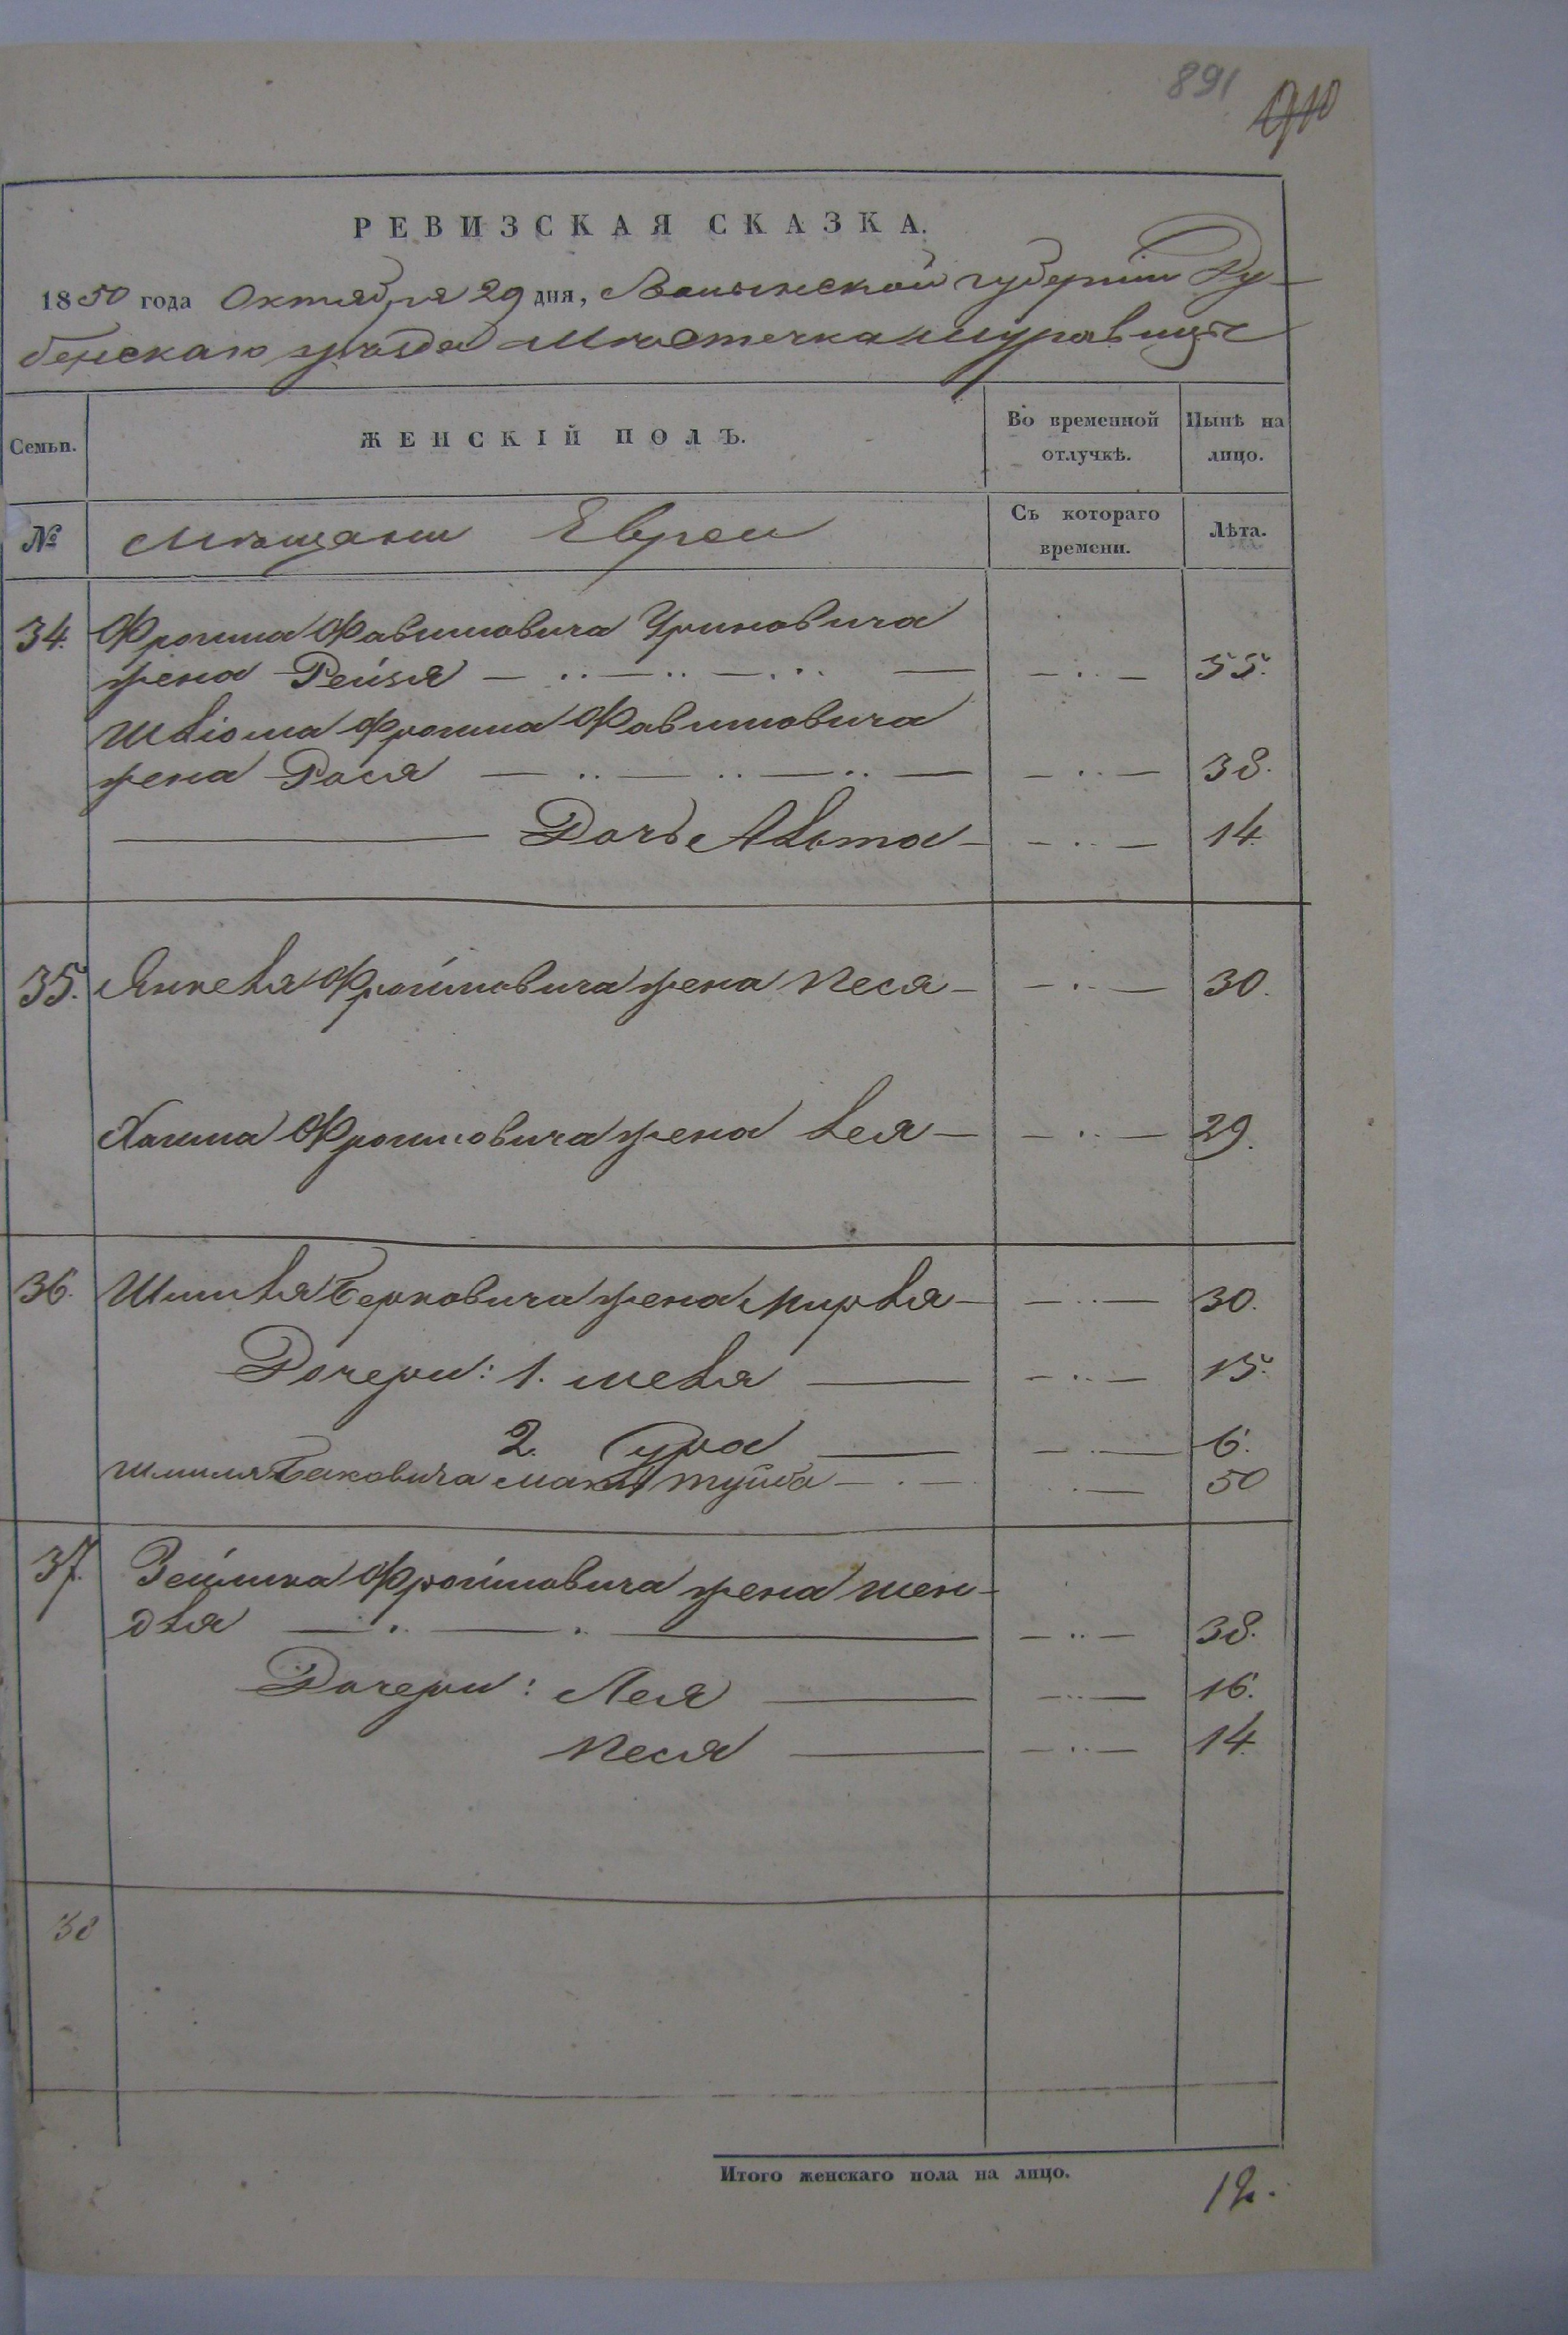 891
910
РЕВИЗСКАЯ СКАЗКА.
1850 года Октября 29 дня, Волынской губернiи Ду-
бенскаго уѣзда Мѣстечка Муравицъ
Семьи.
ЖЕНСКІЙ ПОЛЪ.
Во временной отлучкѣ.
Нынѣ на лицо.
№
Мѣщани Евреи
Съ котораго времени.
Лѣта.
34. Фроима Фавишовича
жена Рейзя — 55.
Шліома Фроима Фавишовича
жена Рося — 38.
Дочь Альта — 14.
35. Янкеля Фроимовича жена Песя — 30.
Хаима Фроимовича жена Лея — 29.
36. Шмиля Берковича жена Мирля — 30.
Дочери: 1. — 15.
2. Сура — 6.
Шмиля мать — 50
37. Зейлика Фроймовича жена Шен-
для — 38.
Дочери: Лея — 16.
Песя — 14.
38
Итого женскаго пола на лицо. 12.